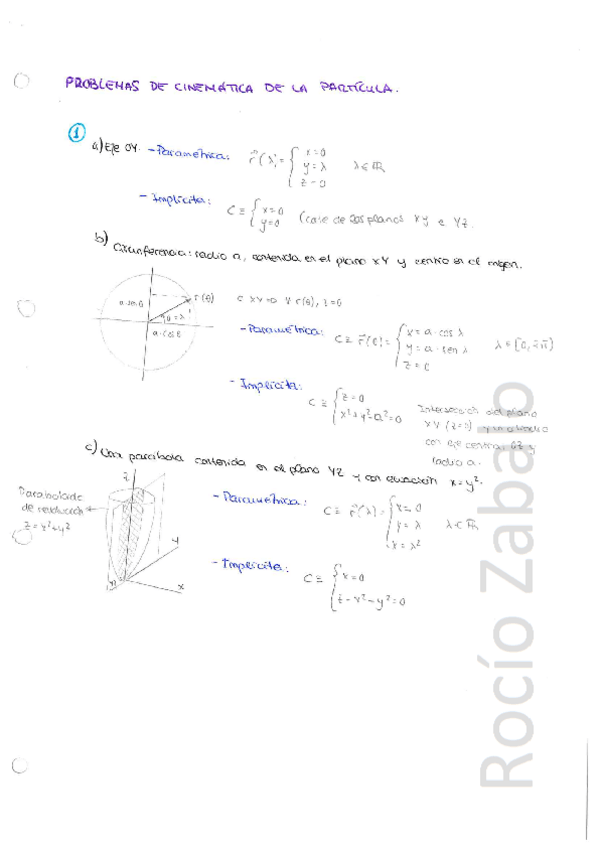 PROBLEMAS DE CINEMÁTICA DE LA PARTÍCULA.
①
a) Eje OY. - Paramétrica: r⃗(λ) = { x=0
y=λ λ∈ℝ
z=0
- Implícita: C ≡ { x=0
y=0 (corte de los planos XY e YZ.
b) Circunferencia: radio a, contenida en el plano XY y centro en el origen.
a·senθ r(θ)
θ=λ
a·cosθ
- Paramétrica: C ≡ r⃗(θ) = { x = a·cos λ
y = a·sen λ λ∈[0,2π)
z = 0
- Implícita: C ≡ { z=0
x²+y²-a²=0
Intersección del plano
XY (z=0) y un cilindro
con eje central OZ y
radio a.
c) Una parábola contenida en el plano YZ y con ecuación x=y².
Paraboloide
de revolución
z=x²+y²
z
y
x
- Paramétrica: C ≡ r⃗(λ) = { x=0
y=λ λ∈ℝ
x=λ²
- Implícita: C ≡ { x=0
z-x²-y²=0
Rocío Zabalo